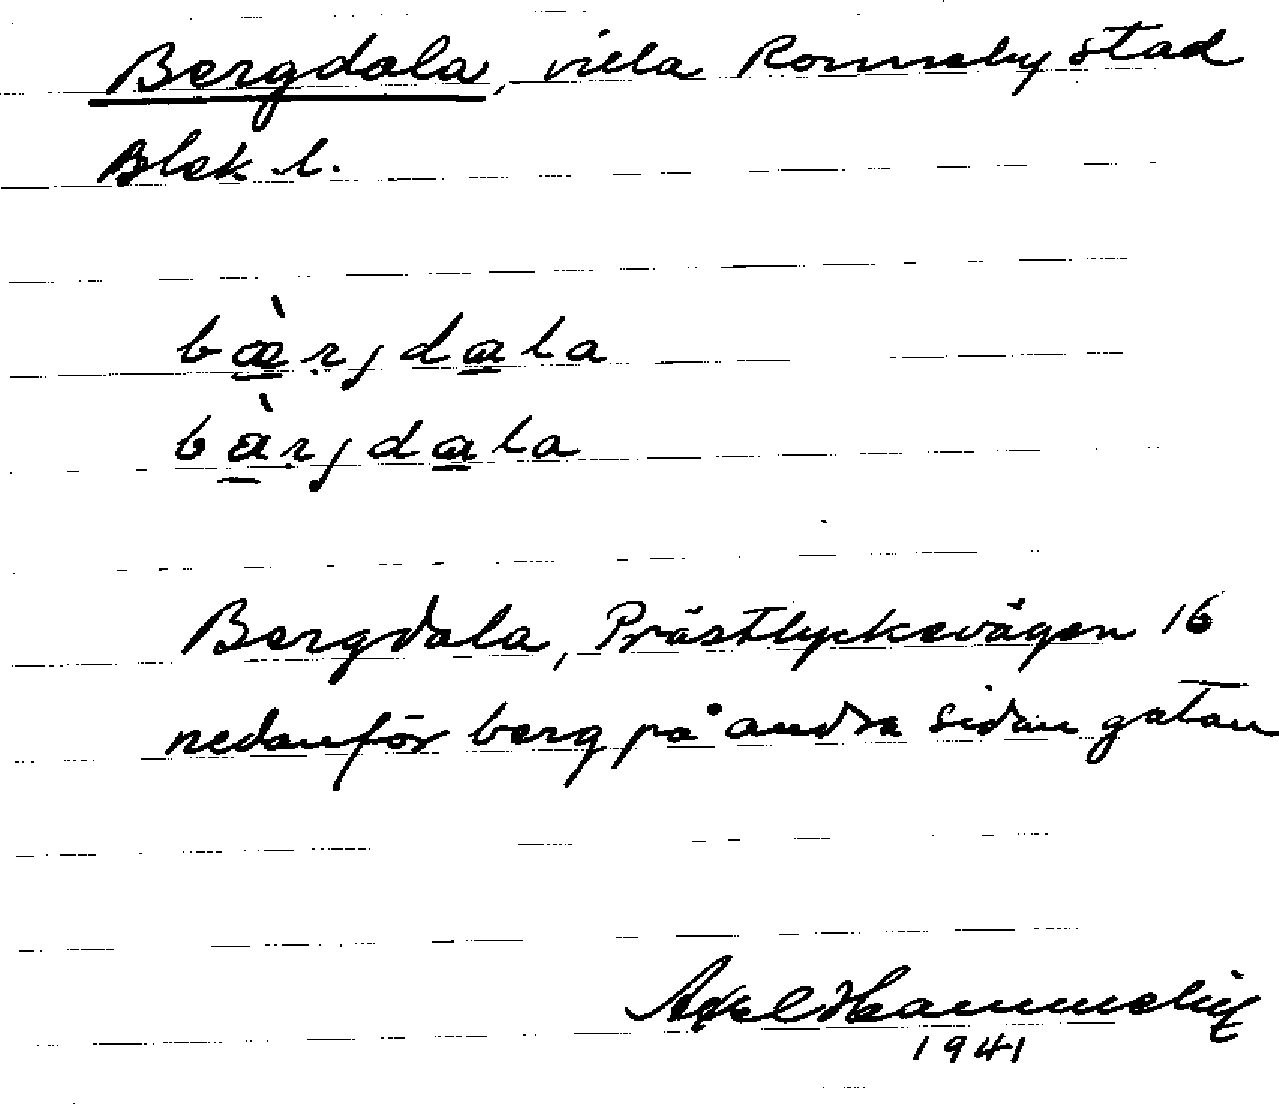 Bergdala, villa Ronneby stad
Blek l.
bæ̀rjdala
bàrjdala
Bergdala, Prästlyckevägen 16
nedanför berg på andra sidan gatan
Axel
1941